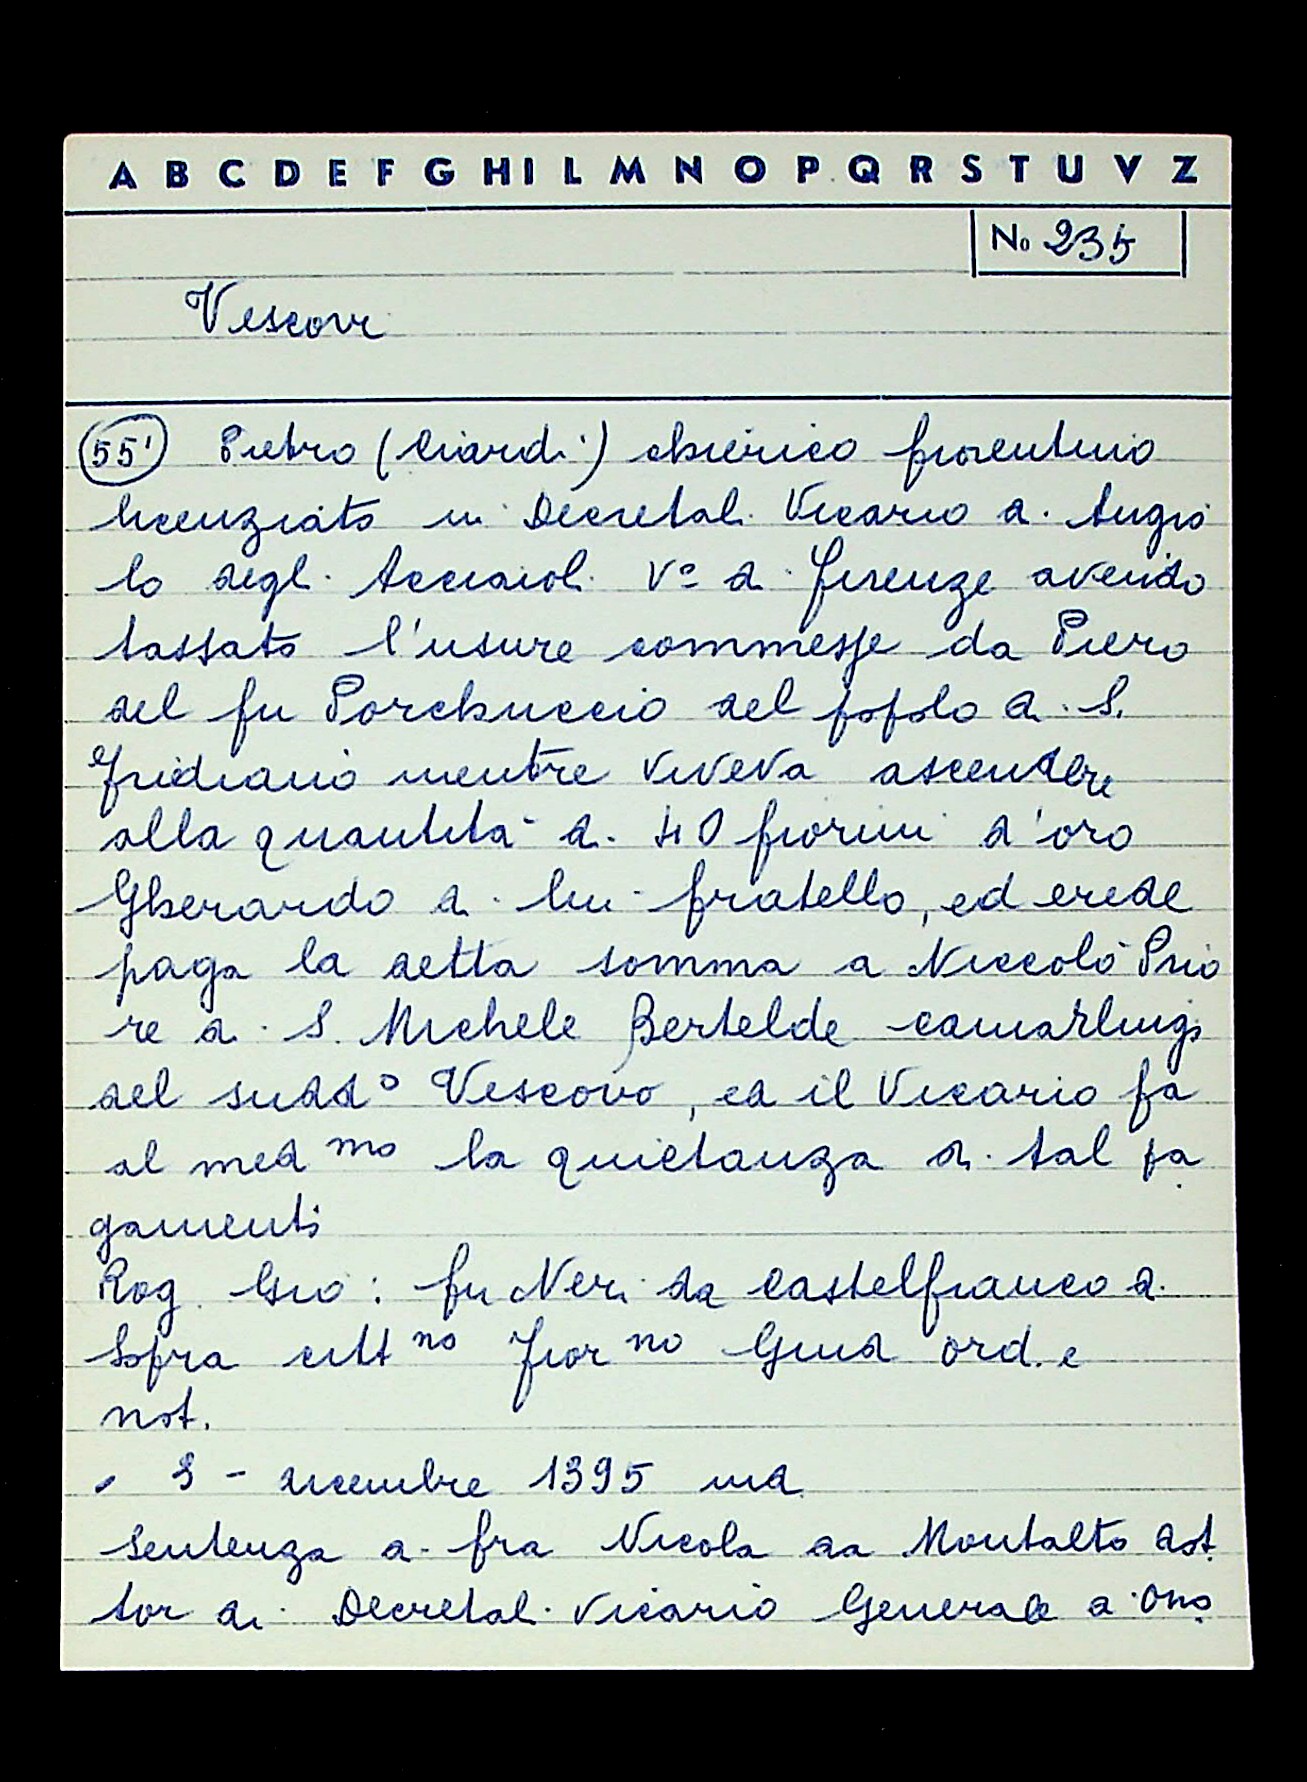 A B C D E F G H I L M N O P Q R S T U V Z
No 235
Vescovi
55' Pietro (Ciardi) chierico fiorentino
licenziato in Decretali Vicario di Angio
lo degli Acciaioli Vº di Firenze avendo
tassato l'usure commesse da Piero
del fu Porchuccio del popolo di S.
Fridiano mentre viveva ascendere
alla quantità di 40 fiorini d'oro
Gherardo di lui fratello, ed erede
paga la detta somma a Niccolò Prio
re di S. Michele Bertelde camarlingo
del suddº Vescovo, ed il Vicario fa
al med mo la quietanza di tal pa
gamenti
Rog. Gio: fu Neri da Castelfranco di
Sopra citt no Fior no Giud ord. e
not.
3 - dicembre 1395 ind.
Sentenza di fra Nicola da Montalto dot
tor di Decretali Vicario Generale di Ono